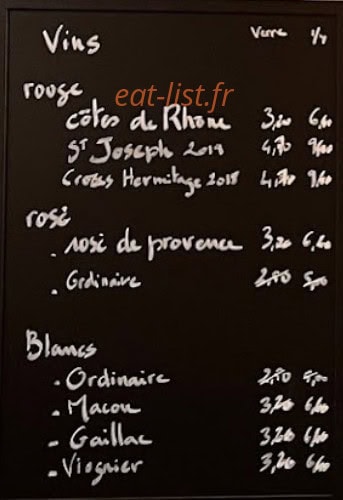 Vins Verre
rouge
eat-list.fr
côtes de Rhône 3,20 6,40
St Joseph 2019 4,70 9,40
Crozes Hermitage 2018 4,70 9,40
rosé
. rosé de provence 3,20 6,40
. Ordinaire 2,50 5,00
Blancs
. Ordinaire 2,50 5,00
. Macon 3,20 6,40
. Gaillac 3,20 6,40
. Viognier 3,20 6,40